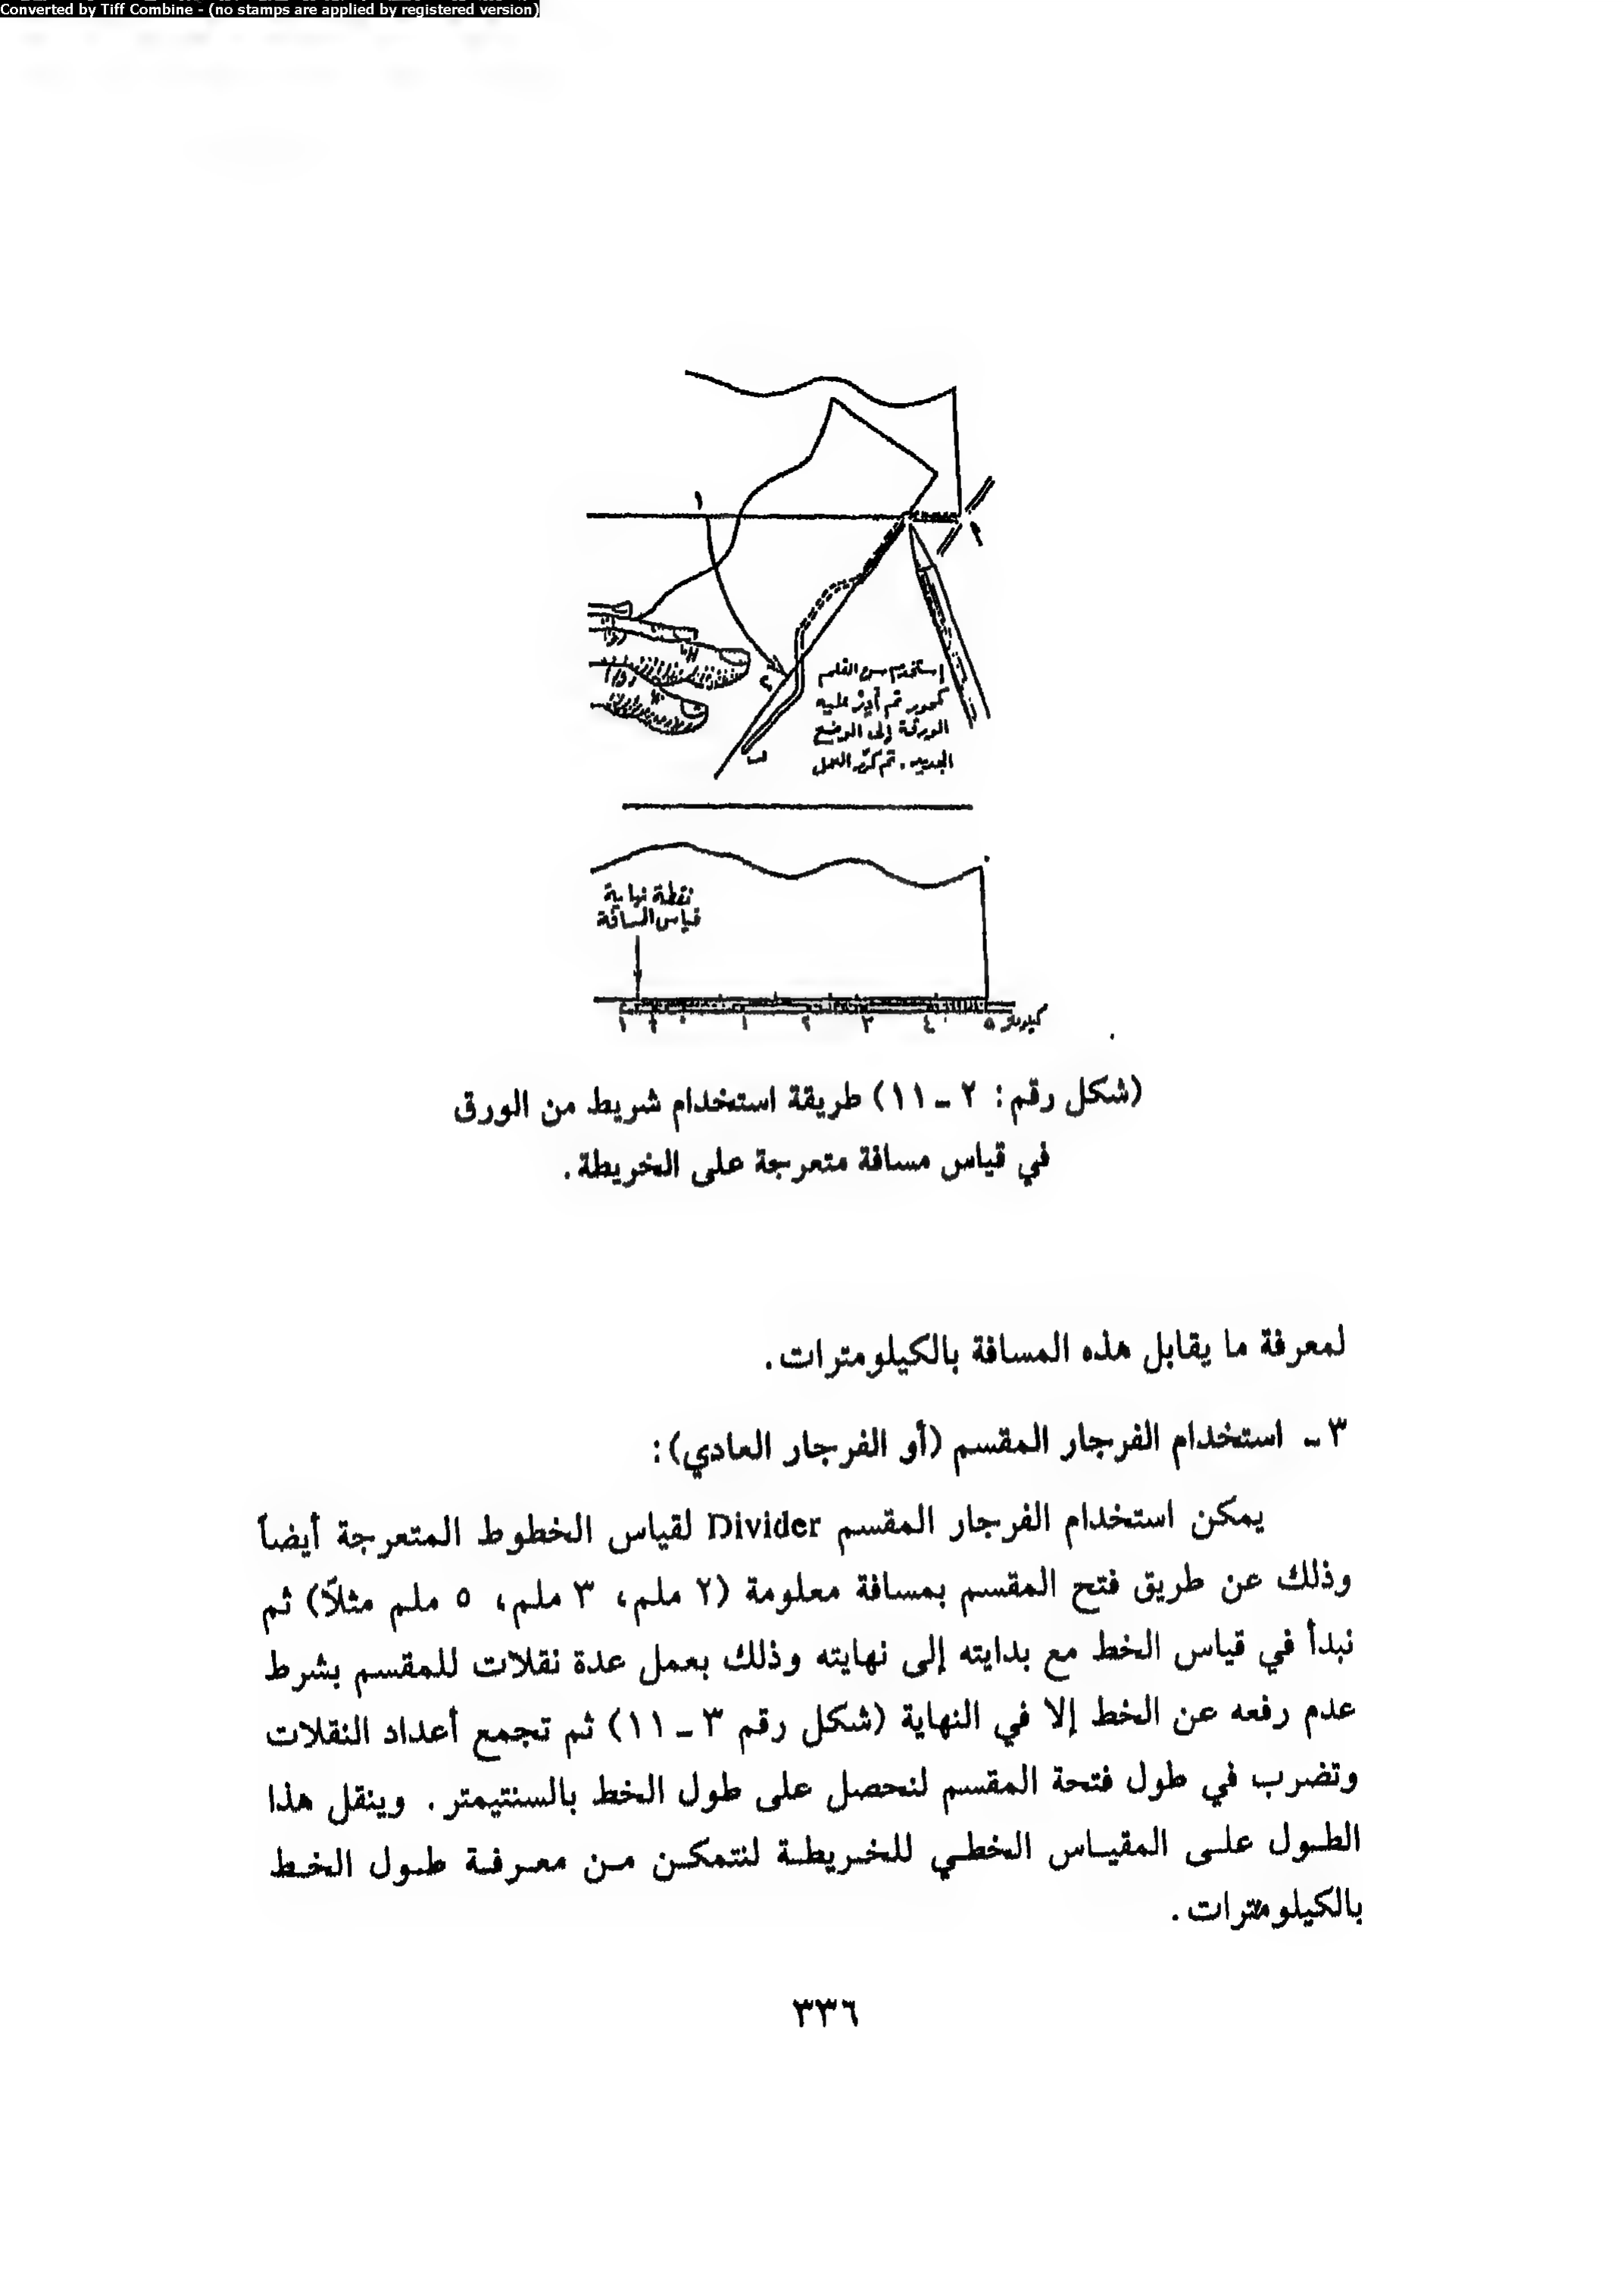 Converted by Tiff Combine - (no stamps are applied by registered version)
١
أ
إستخدم سن القلم
كمحور ثم أدِرْ عليه
الورقة إلى الوضع
الجديد. ثم كرّر العمل
٢
ب
نقطة نهاية
قياس المسافة
٠ ١ ٢ ٣ ٤ ٥ كيلومتر
(شكل رقم: ٢ ــ ١١) طريقة استخدام شريط من الورق
في قياس مسافة متعرجة على الخريطة.
لمعرفة ما يقابل هذه المسافة بالكيلومترات.
٣ ــ استخدام الفرجار المقسم (أو الفرجار العادي):
يمكن استخدام الفرجار المقسم Divider لقياس الخطوط المتعرجة أيضاً
وذلك عن طريق فتح المقسم بمسافة معلومة (٢ ملم، ٣ ملم، ٥ ملم مثلاً) ثم
نبدأ في قياس الخط مع بدايته إلى نهايته وذلك بعمل عدة نقلات للمقسم بشرط
عدم رفعه عن الخط إلا في النهاية (شكل رقم ٣ ــ ١١) ثم تجمع أعداد النقلات
وتضرب في طول فتحة المقسم لنحصل على طول الخط بالسنتيمتر. وينقل هذا
الطول على المقياس الخطي للخريطة لنتمكن من معرفة طول الخط
بالكيلومترات.
٣٣٦